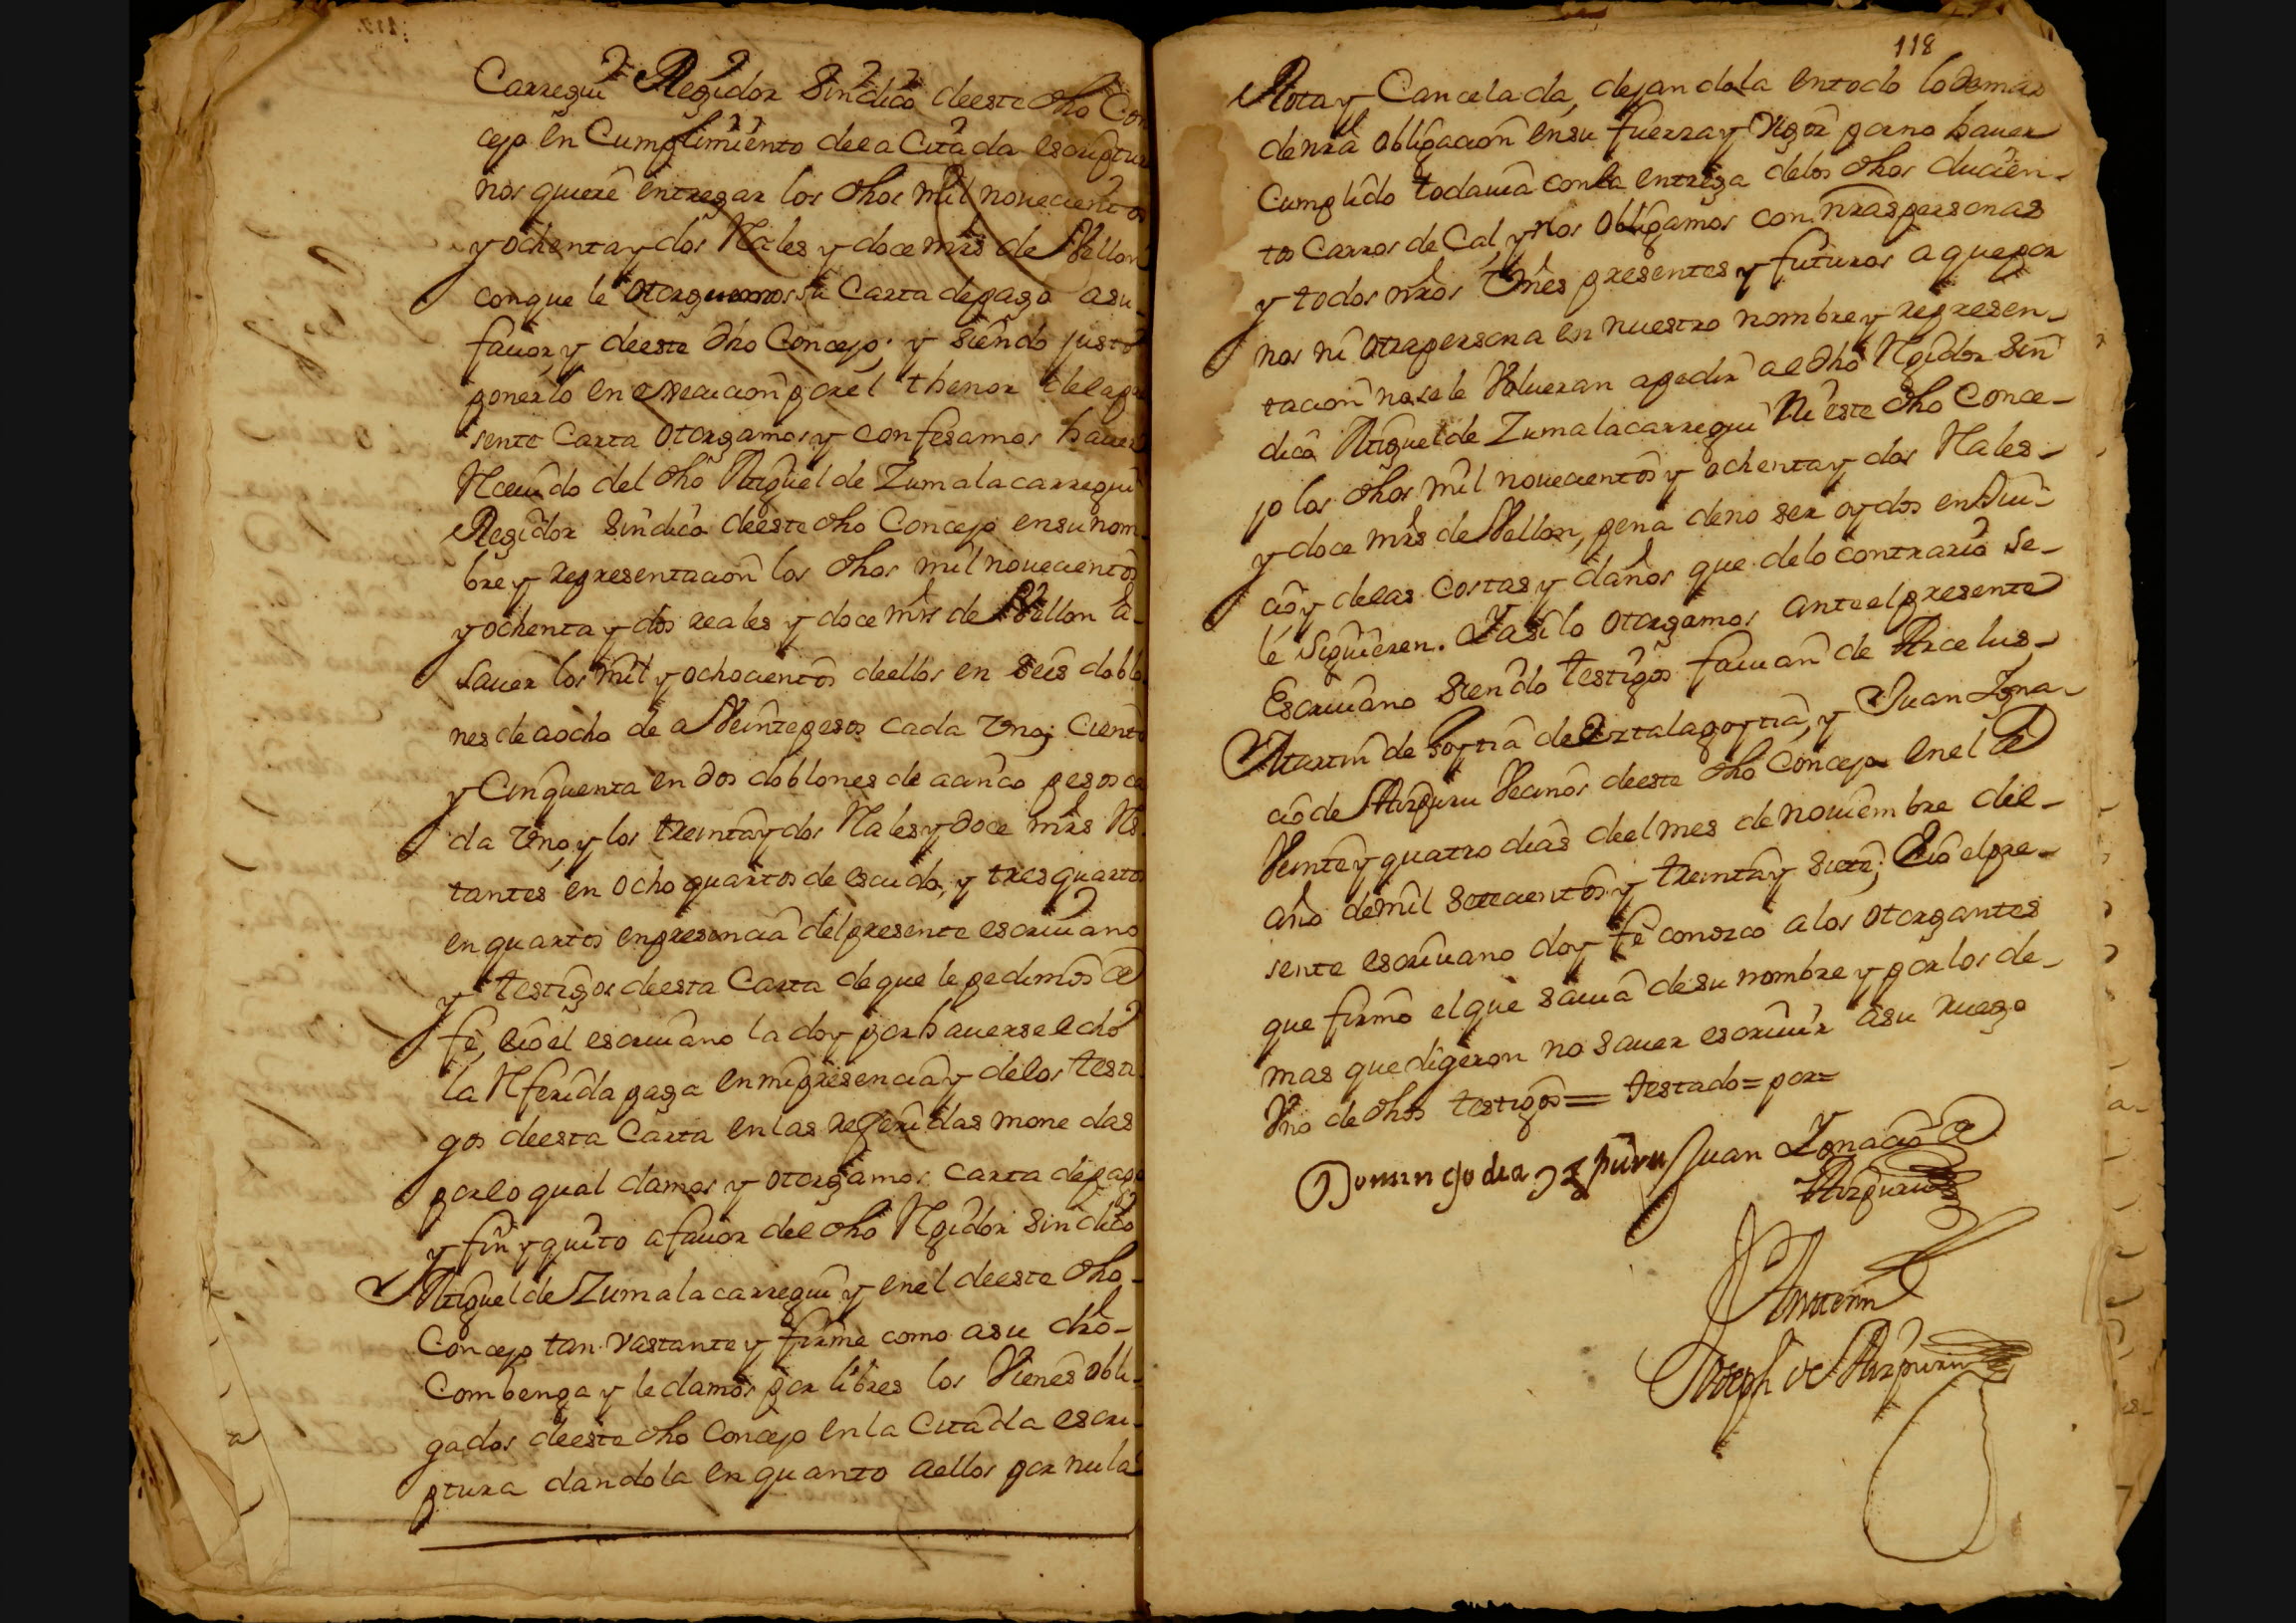 Carregui Regidor Sindico deeste dho Con
cejo en Cumplimiento dela Citada escriptur
nos quiere entregar los dhos mil novecientos
y ochenta y dos Rales y doce mrs de Vellon
con que le otorguemos su Carta de pago a su
favor, y deeste dho Concejo; y siendo justo
ponerlo en execucion por el thenor dela pre
sente Carta otorgamos y confesamos haver
Rcevido del dho Miguel de Zumalacarregui
Regidor Sindico deeste dho Concejo en su nom-
bre y representacion los dhos mil novecientos
y ochenta y dos reales y doce mrs de Vellon a-
saver los mil y ochocientos deellos en seis doblo
nes de aocho de a Veinte pesos cada Uno; Ciento
y Cinquenta en dos doblones de acinco pesos ca
da Uno, y los treinta y dos Rales y doce mrs Rs
tantes en ocho quartos de escudo, y tres quartos
en quartos en presencia del presente escrivano
y testigos deesta Carta de que le pedimos de
fe, eio el escrivano la doy por haverse echo
la Rferida paga en mi presencia y delos testi
gos deesta Carta en las referidas monedas
por lo qual damos y otorgamos carta de pago
y fin y quito a favor del dho Rgidor Sindico
Miguel de Zumalacarregui y en el deeste dho-
Concejo tan vastante y firme como a su dro-
Combenga y le damos por libres los Vienes obli-
gados deeste dho Concejo en la Citada escri-
ptura dandola en quanto aellos por nula
118
Rota y Cancelada, dejandola en todo lo demas
de nra obligacion en su fuerza y Vigor por no haver
Cumplido todavia con la entrega delos dhos ducien-
tos Carros de Cal, y nos obligamos con nras personas
y todos nros Vnes presentes y futuros a que por
nos ni otra persona en nuestro nombre y represen-
tacion no se le Volveran a pedir al dho Rgidor Sin
dico Miguel de Zumalacarregui Ni este dho Conce-
jo los dhos mil novecientos y ochenta y dos Rales-
y doce mrs de Vellon, pena de no ser oydos en Jui-
cio y delas costas y daños que delo contrario se-
le siguieren. Y asi lo otorgamos ante el presente
Escrivano siendo testigos favian de Arcelus-
Martin de Goytia de Ortalagoytia, y Juan Igna-
cio de Aizpuru Vecinos deeste dho Concejo en el a
Veinte y quatro dias deel mes de noviembre del-
año de mil setecientos y treinta y siete; Eio el pre-
sente escrivano doy fe conozco a los otorgantes
que firmo el que savia de su nombre y por los de-
mas que digeron no saver escrivir a su ruego
Uno de dhos testigos = testado = por =
Domingo de Azpuru Juan Ignacio de
Aizpuru
Ante mi
Joseph de Aizpuru